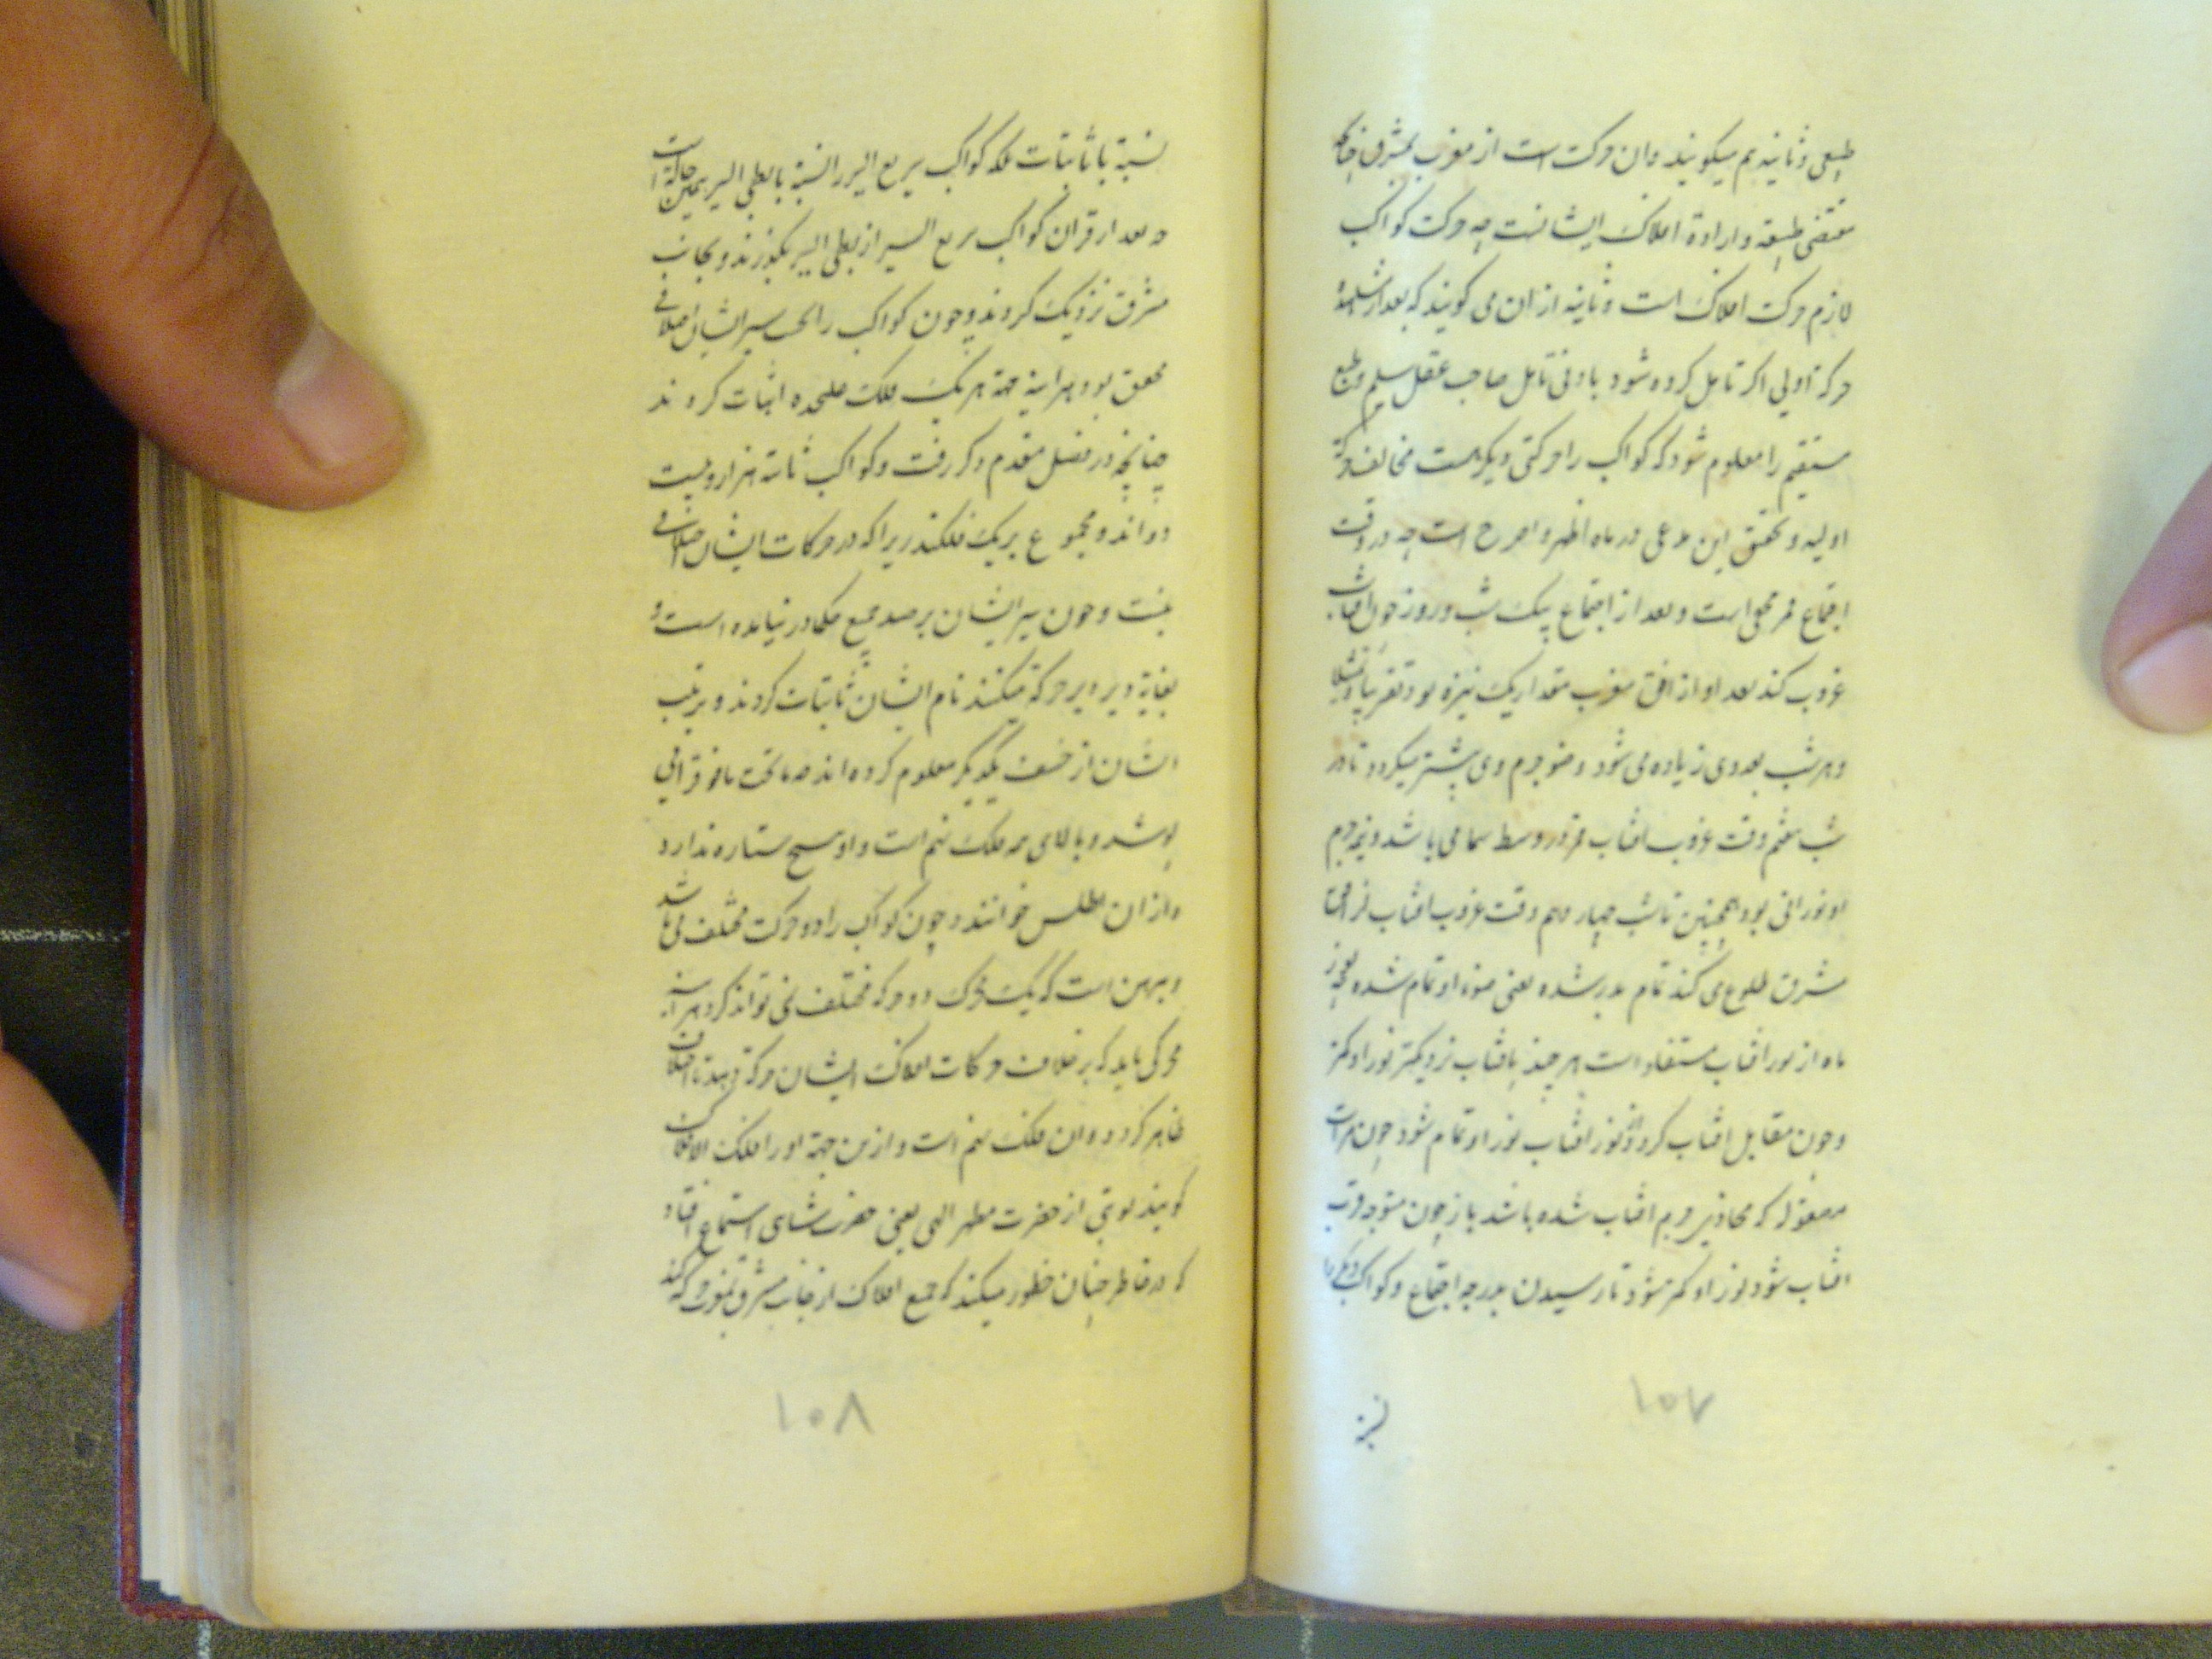 طبیعی و ثانیه هم میگویند و ان حرکت است از مغرب بمشرق چنانکه
مقتضی طبیعة و ارادة افلاک ایشانست چه حرکت کواکب
لازم حرکت افلاک است و ثانیه ازان می گویند که بعد از مشاهدهٔ
حرکة اولی اکر تامل کرده شود بادنی تامل صاحب عقل سلیم و طبع
مستقیم را معلوم شود که کواکب را حرکتی دیکر هست مخالف حرکة
اولیه و تحقیق این مدعی در ماه اظهر و اصرح است چه در وقت
اجتماع قمر محق است و بعد از اجتماع یک شب و روز چون افتاب
غروب کند بعد او از افق مغرب مقدار یک نیزه بود تقریبا
و هر شب بعد وی زیاده می شود و ضو جرم وی بیشتر میکردد تا در
شب هفتم وقت غروب افتاب قمر در وسط سما می باشد و نیمه جرم
او نورانی بود همچنین تا شب چهاردهم وقت غروب افتاب از افق
مشرق طلوع می کند تمام بدر شده یعنی ضوء او تمام شده
ماه از نور افتاب مستفاد است هر چند بافتاب نزدیکتر نور او کمتر
و چون مقابل افتاب کردد نور افتاب نور او تمام شود چون مرات
مصقول که محاذی جرم افتاب شده باشد باز چون متوجه قرب
افتاب شود نور او کمتر شود تا رسیدن بدرجه اجتماع و کواکب دیکر با
نسبة
۱۰۷
نسبة با ثابتات بلکه کواکب سریع السیر را نسبة با بطی السیر همین حالة است
که بعد از قران کواکب سریع السیر از بطی السیر بکذرند و بجانب
مشرق نزدیک کردند و چون کواکب را بحسب سیر ایشان اختلافی
محقق بود هراینه جهة هر یک فلک علیحده اثبات کردند
چنانچه در فصل مقدم ذکر رفت و کواکب ثابته هزار و بیست
دو اند و مجموع بر یک فلکند زیرا که در حرکات ایشان اختلافی
نیست و چون سیر ایشان برصد جمیع حکما در نیامده است و
بغایة دیر دیر حرکة میکنند نام ایشان ثابتات کردند و ترتیب
ایشان از خسف یکدیکر معلوم کرده اند چه ماتحت مافوق را می
پوشد و بالای همه فلک نهم است و او هیچ ستاره ندارد
و ازان اطلس خوانند و چون کواکب را دو حرکت مختلف می باشد
و مبرهن است که یک محرک دو حرکة مختلف نمی تواند کرد هراینه
محرکی باید که بر خلاف حرکات افلاک ایشان حرکة دهد تا اختلاف
ظاهر کردد و ان فلک نهم است و ازین جهة او را فلک الافلاک
کویند نوبتی از حضرت مظهر الهی یعنی حضرت شاهی استماع افتاد
که در خاطر چنان خطور میکند که جمیع افلاک از جانب مشرق بمغرب حرکة کند
۱۰۸